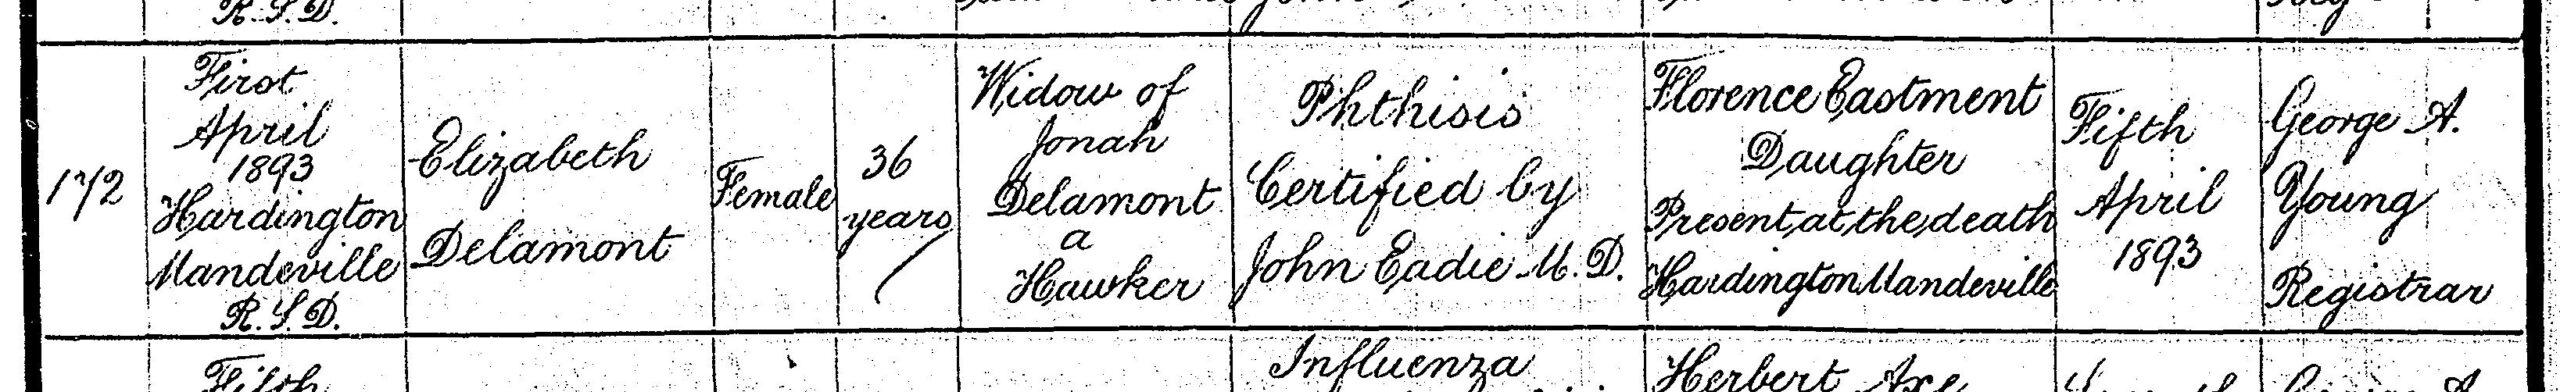 R.S.D.
172
First
April
1893
Hardington
Mandeville
R.S.D.
Elizabeth
Delamont
Female
36
years
Widow of
Jonah
Delamont
a
Hawker
Phthisis
Certified by
John Eadie M.D.
Florence Eastment
Daughter
Present at the death
Hardington Mandeville
Fifth
April
1893
George A.
Young
Registrar
Fifth
Influenza
Herbert Axe